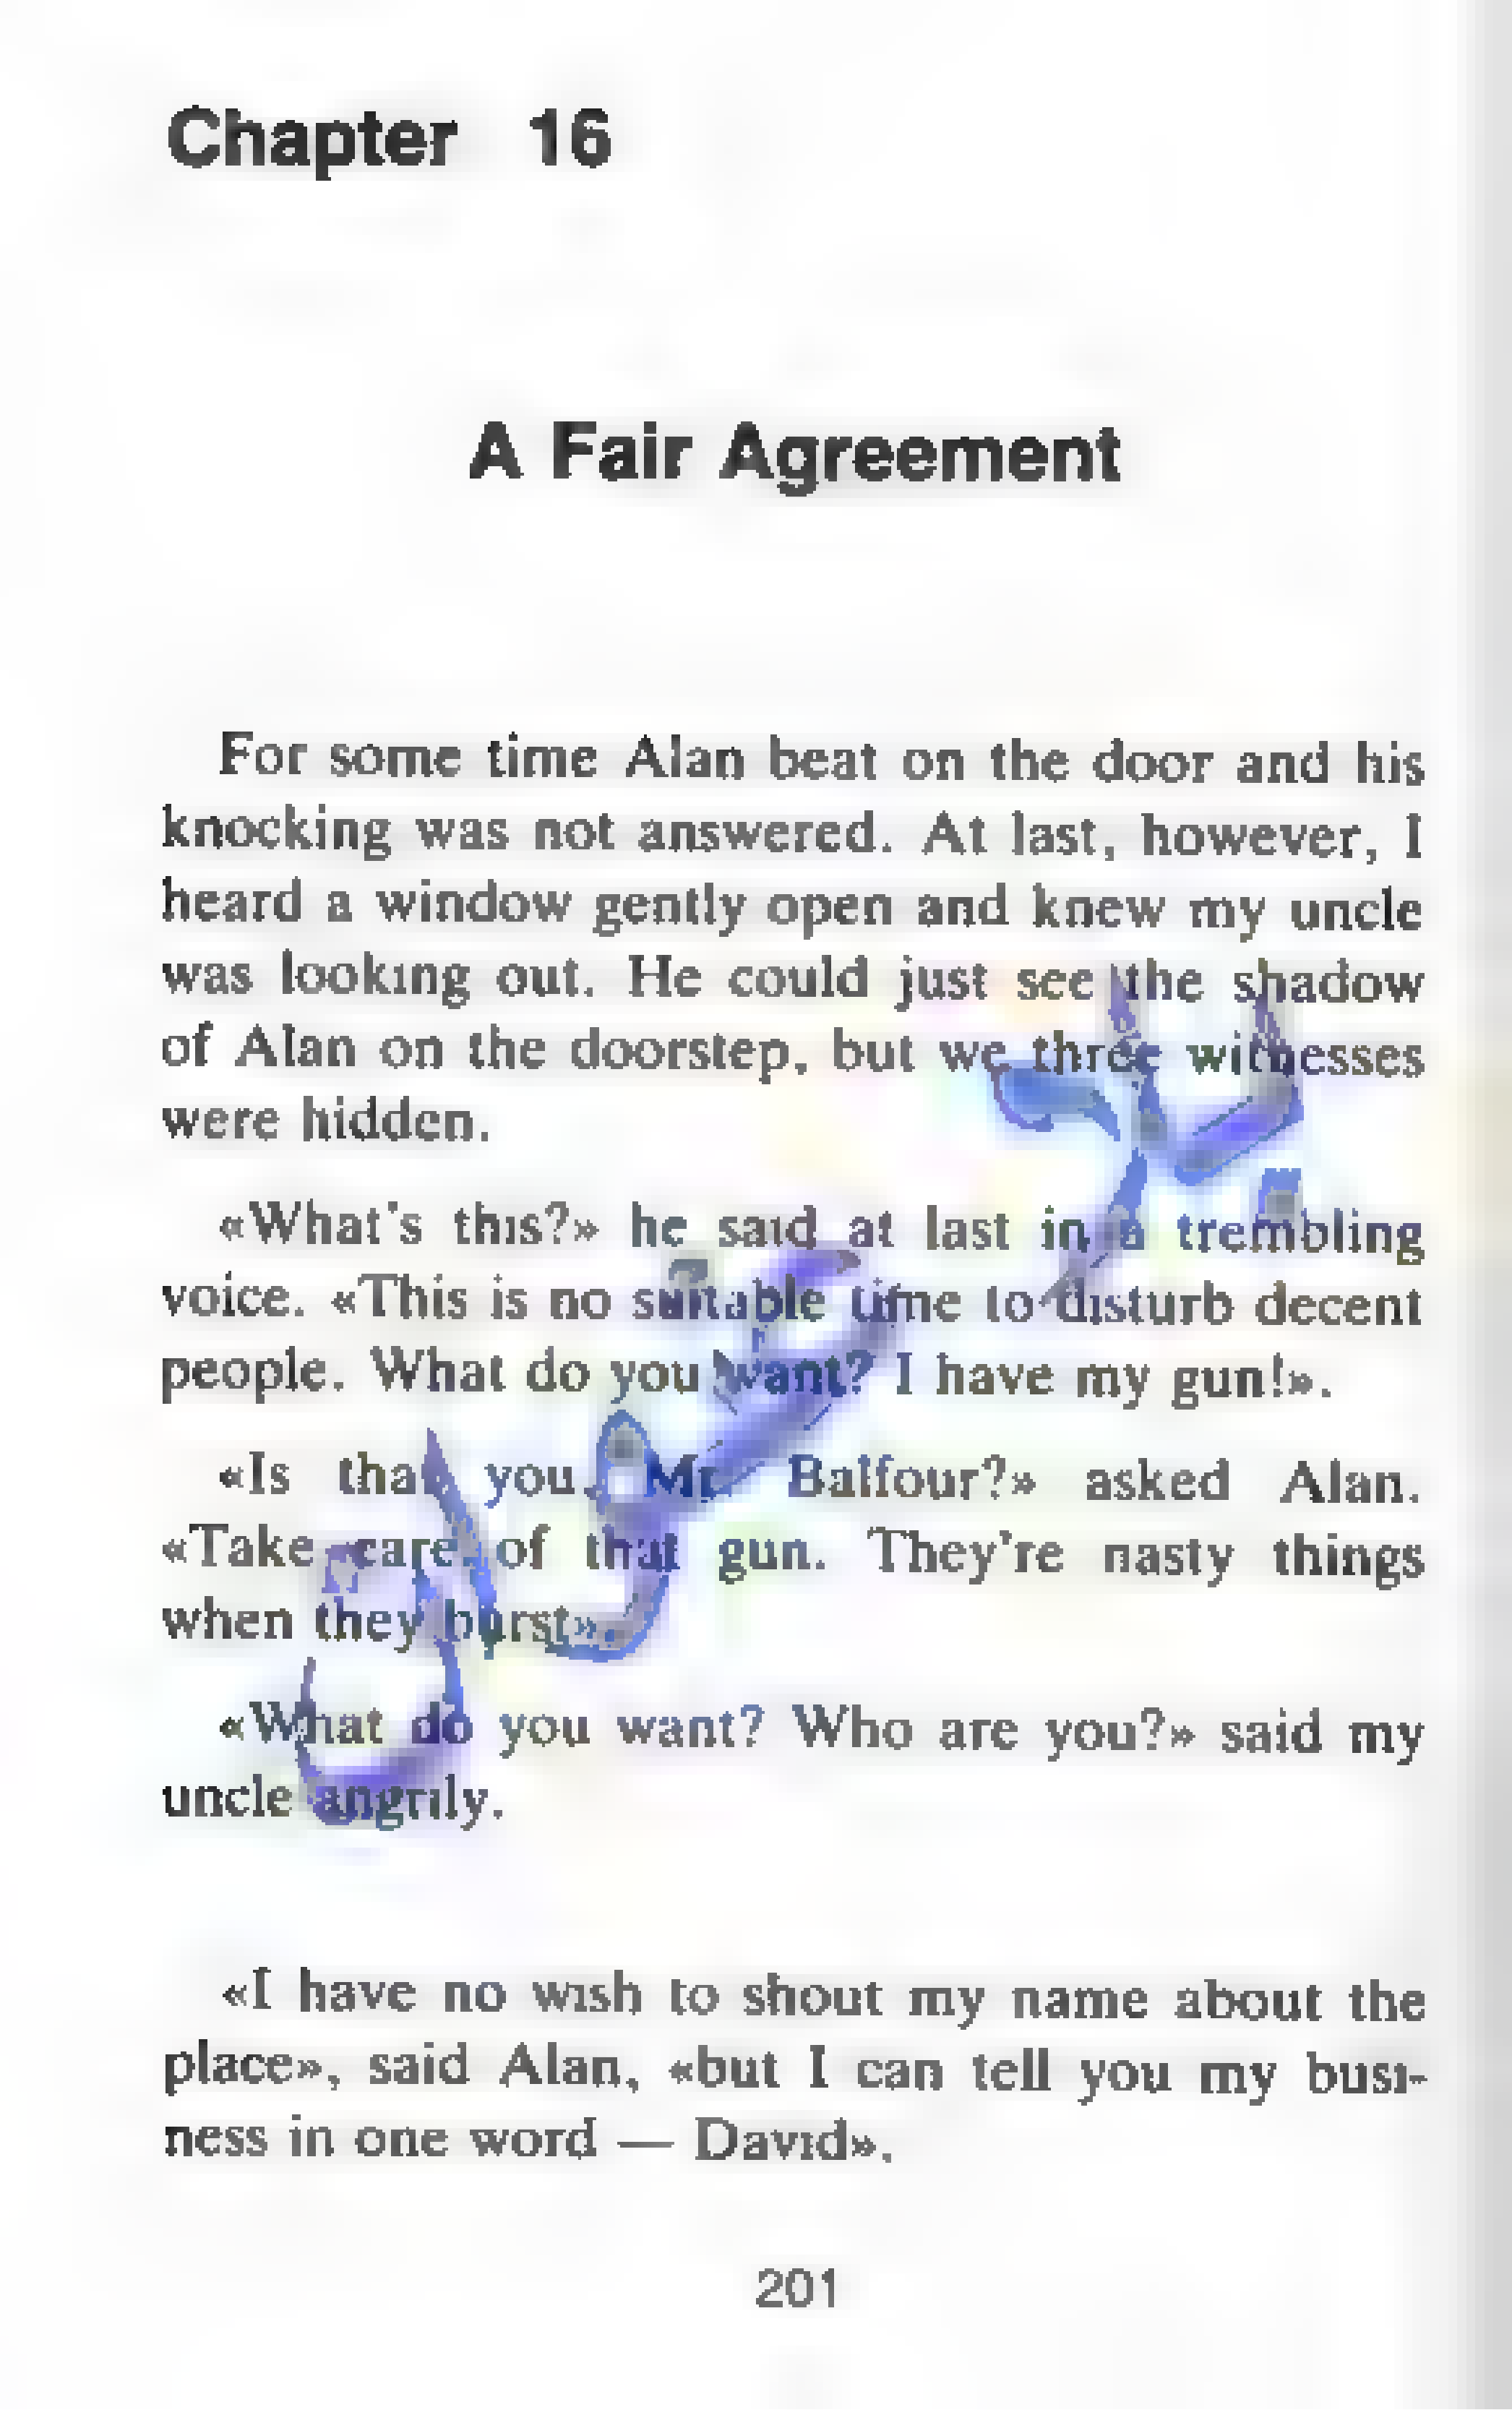 Chapter 16
A Fair Agreement
For some time Alan beat on the door and his
knocking was not answered. At last, however, I
heard a window gently open and knew my uncle
was looking out. He could just see the shadow
of Alan on the doorstep, but we three witnesses
were hidden.
«What's this?» he said at last in a trembling
voice. «This is no suitable time to disturb decent
people. What do you want? I have my gun!».
«Is that you, Mr. Balfour?» asked Alan.
«Take care of that gun. They're nasty things
when they burst».
«What do you want? Who are you?» said my
uncle angrily.
«I have no wish to shout my name about the
place», said Alan, «but I can tell you my busi-
ness in one word — David».
201